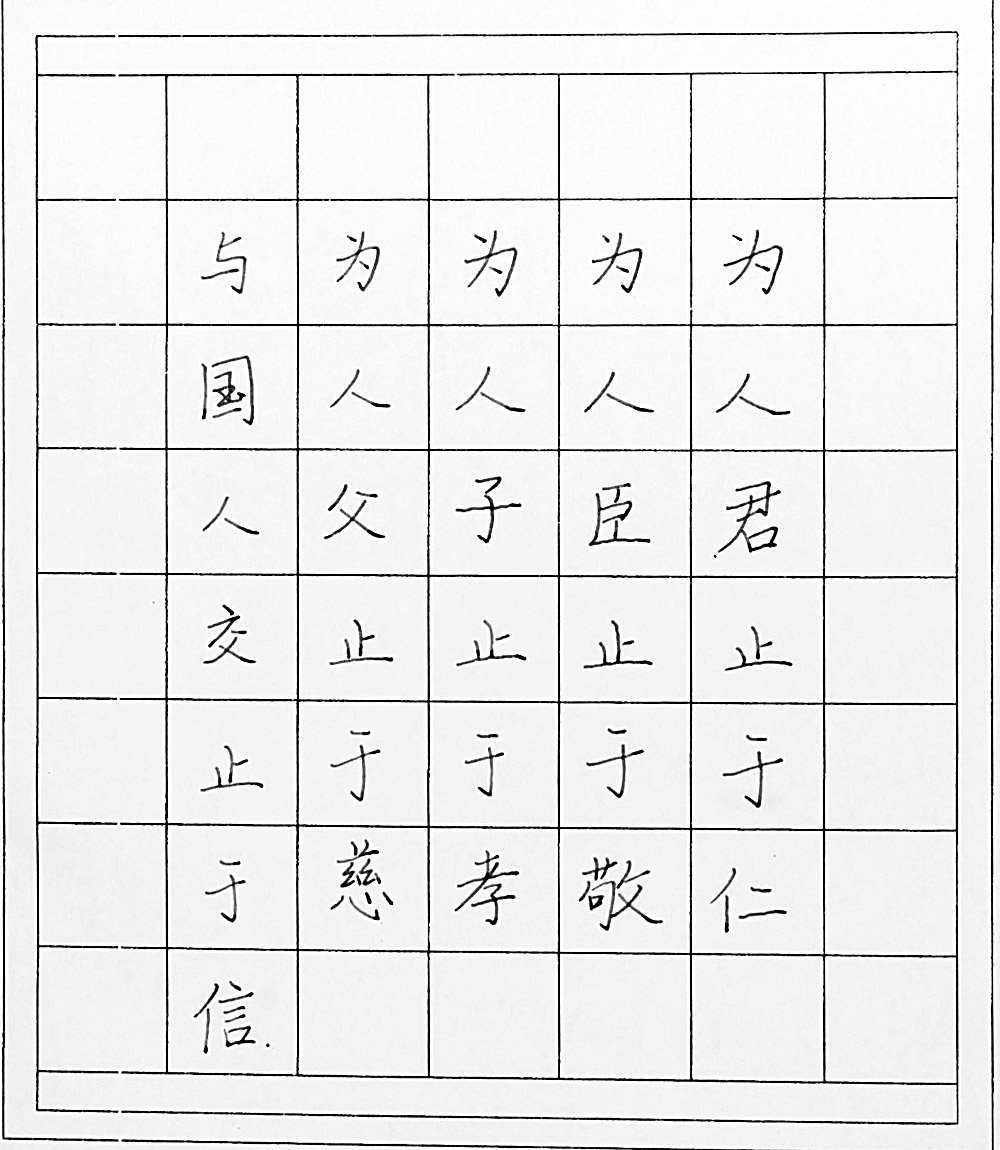 为人君止于仁
为人臣止于敬
为人子止于孝
为人父止于慈
与国人交止于信.